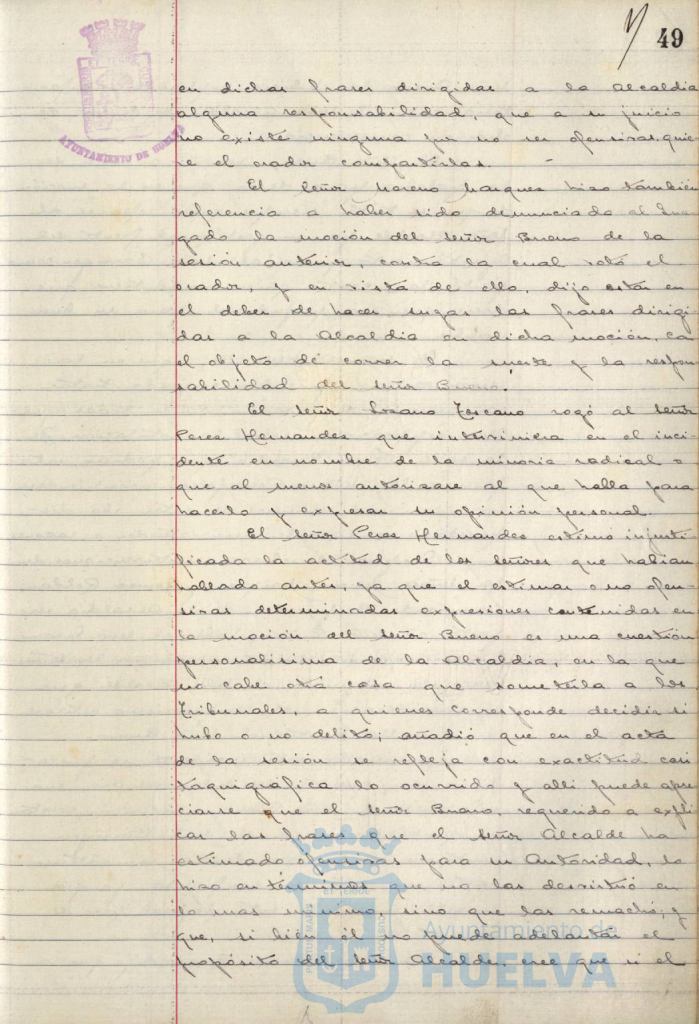 49
AYUNTAMIENTO DE HUELVA
en dichas frases dirigidas a la Alcaldia
alguna responsabilidad, que a su juicio
no existe ninguna por no ser ofensivas, quie-
re el orador compartirlas. -
El Señor Moreno Marquez hizo también
referencia a haber sido denunciado al Juz
gado la moción del Señor Bueno de la
sesión anterior, contra la cual votó el
orador, y en vista de ello, dijo estar en
el deber de hacer suyas las frases dirigi-
das a la Alcaldia en dicha moción, con
el objeto de correr la suerte y la respon
sabilidad del Señor Bueno.
El Señor Lozano Toscano rogó al Señor
Perez Hernandez que interviniera en el inci-
dente en nombre de la minoria radical o
que al menos autorizase al que habla para
hacerlo y expresar su opinión personal.
El Señor Perez Hernandez estimó injusti-
ficada la actitud de los Señores que habian
hablado antes, ya que el estimar o no ofen-
sivas determinadas expresiones contenidas en
la moción del Señor Bueno es una cuestión
personalisima de la Alcaldia, en la que
no cabe otra cosa que someterla a los
Tribunales, a quienes corresponde decidir si
hubo o no delito; añadió que en el acta
de la sesión se refleja con exactitud casi
taquigráfica lo ocurrido y alli puede apre
ciarse que el Señor Bueno, requerido a expli
car las frases que el Señor Alcalde ha
estimado ofensivas para su Autoridad, lo
hizo en términos que no las desvirtuó en
lo mas minimo, sino que las remachó; y
que, si bien él no puede adelantar el
propósito del Señor Alcalde, cree que si el
Ayuntamiento de
HUELVA